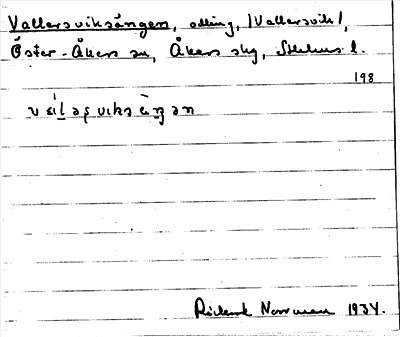 Vallersviksängen, odling, /Vallersvik/,
Öster-Åkers sn, Åkers skg, Sthlms l.
198
Rickard Norrman 1934.